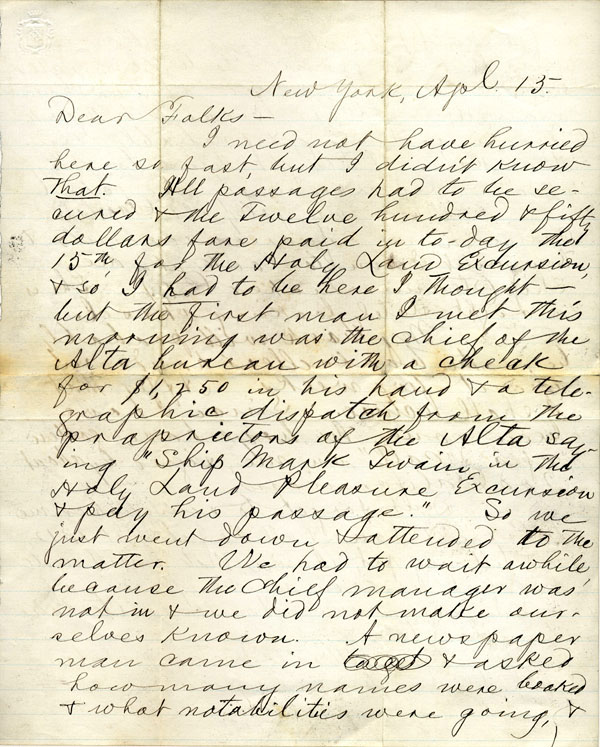 New York, Apl. 15.
Dear Folks—
I need not have hurried
here so fast, but I didn't know
that. All passages had to be se-
cured & the Twelve hundred & fifty
dollars fare paid in to-day the
15th, for the Holy Land Excursion,
& so I had to be here I thought—
but the first man I met this
morning was the chief of the
Alta bureau with a check
for $1,250 in his hand & a tele-
graphic dispatch from the
proprietors of the Alta say-
ing "Ship Mark Twain in the
Holy Land Pleasure Excursion
& pay his passage." So we
just went down & attended to the
matter. We had to wait awhile,
because the chief manager was
not in & we did not make our-
selves known. A newspaper
man came in & asked
how many names were booked
& what notabilities were going, &